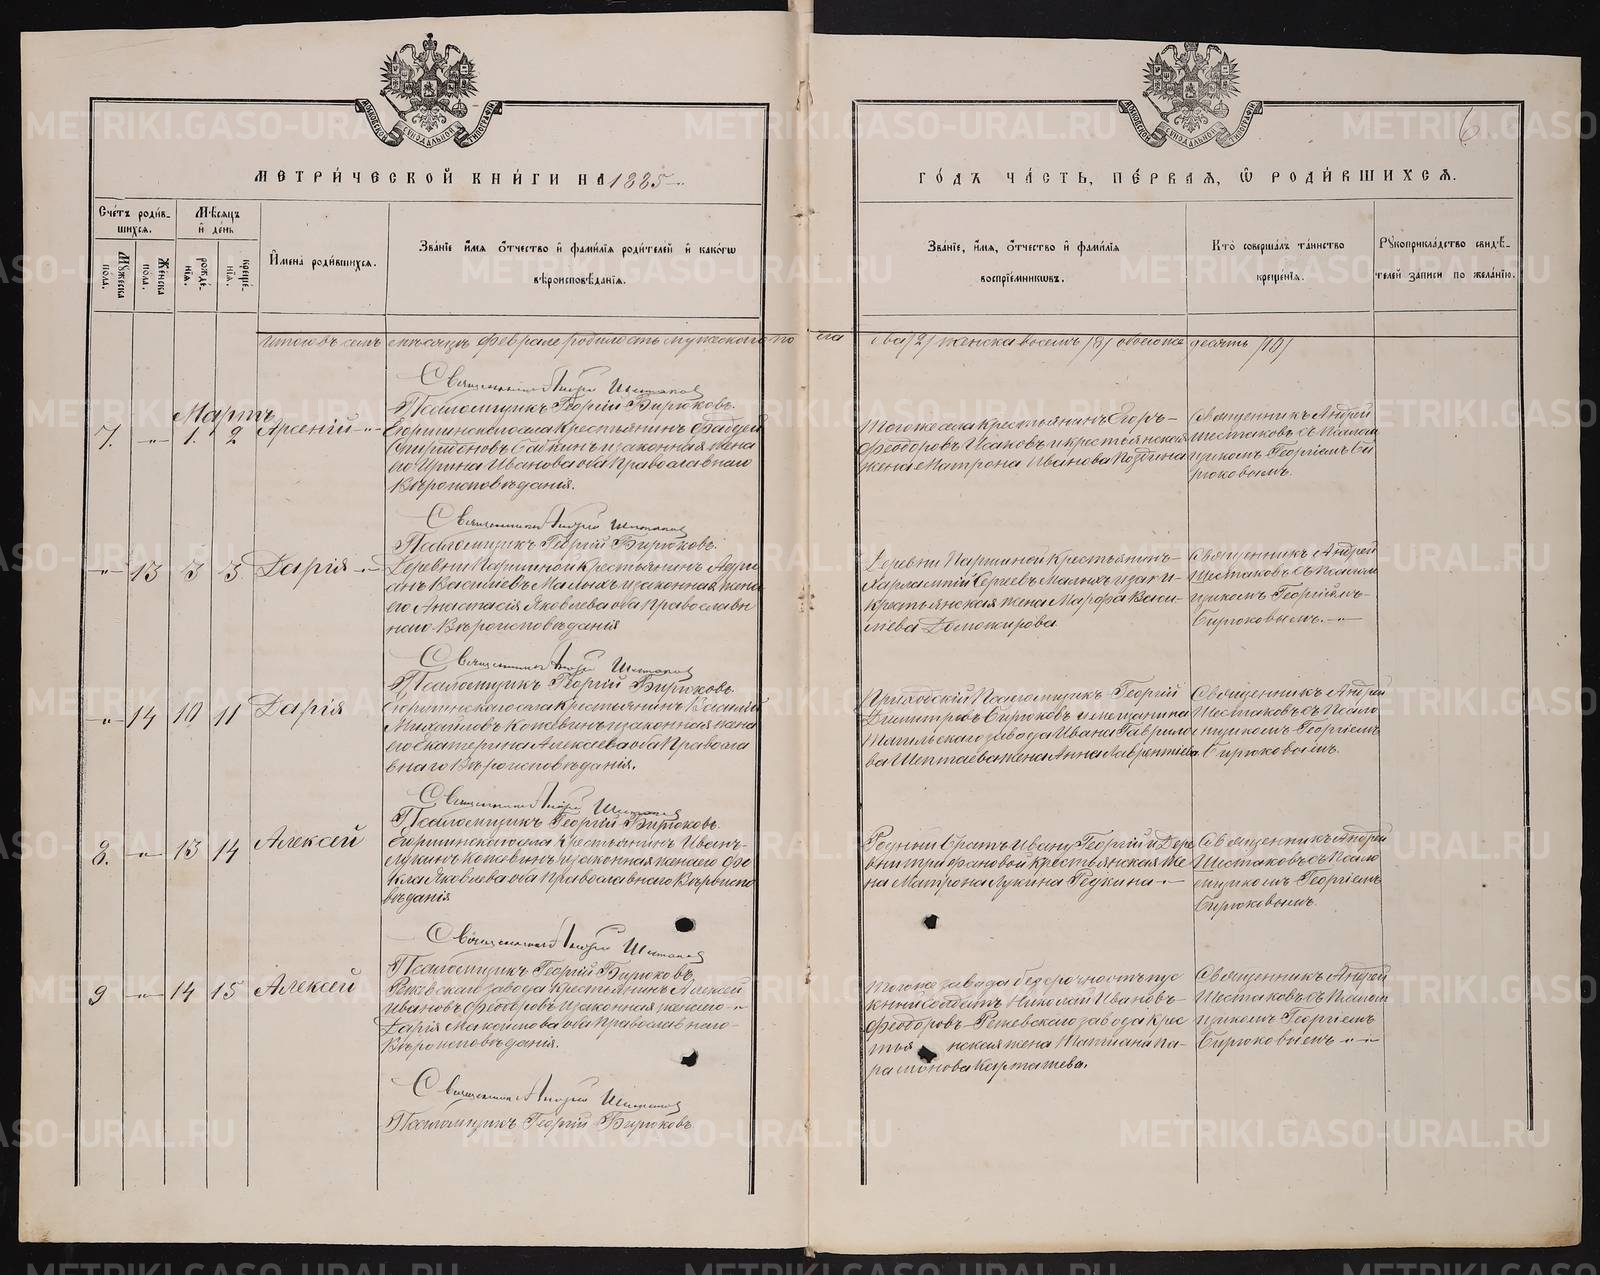 6
МЕТРИ́ЧЕСКОЙ КНИ́ГИ НА 1885
ГО́ДЪ ЧА́СТЬ, ПЕ́РВАЯ, Ѡ РОДИ́ВШИХСЯ.
Счетъ роди́в-
шихся.
Мѣсяцъ
и҆ де́нь
Му́жеска пола.
Же́нска пола.
рожде́-
нїя.
креще́-
нїя.
И҆мена роди́вшихся.
Зва́нїе и҆́мя ѻ҆́тчество и҆ фами́лїя роди́телей и҆ како́гѡ
вѣроисповѣ́данїя.
Зва́нїе, и҆́мя, ѻ҆́тчество и҆ фами́лїя
воспрїе́мникѡвъ.
Кто̀ соверша́лъ та́инство
креще́нїя.
Рꙋкоприкла́дство свидѣ́-
телей записи по жела́нїю.
Итого въ семъ мѣсяцѣ Февралѣ родилось мужескаго пола два /2/ женска восемь /8/ обоего же десять /10/
Священникъ Андрей Шестаковъ
Псаломщикъ Георгій Бирюковъ.
Мартъ
7. " 1. 2 Арсеній
крестьянинъ Фаддей
Спиридоновъ и законная жена
его Ирина Иванова оба Православнаго
Вѣроисповѣданія.
Того же села крестьянинъ Егоръ
Феодоровъ Исаковъ и крестьянская
жена Матрона Иванова
Священникъ Андрей
Шестаковъ съ Псалом
щикомъ Георгіемъ Би
рюковымъ.
Священникъ Андрей Шестаковъ
Псаломщикъ Георгій Бирюковъ.
" 13 3 3 Дарія
Деревни Паршиной крестьянинъ Адрі
анъ Василіевъ Малыхъ и законная жена
его Анастасія Яковлева оба Православ
наго Вѣроисповѣданія
Деревни Паршиной крестьянинъ
Харлампій Сергеевъ Малыхъ и
крестьянская жена Марфа Васи-
лиева Доможирова
Священникъ Андрей
Шестаковъ съ Псалом
щикомъ Георгіемъ
Бирюковымъ.
Священникъ Андрей Шестаковъ
Псаломщикъ Георгій Бирюковъ.
" 14 10 11 Дарія
села крестьянинъ Василій
Михайловъ Кочевинъ и законная жена
его Екатерина Алексеева оба Правосла
внаго Вѣроисповѣданія.
Приходскій Псаломщикъ Георгій
Димитріевъ Бирюковъ и мещанина
Тагильскаго завода Ивана Гаврило
ва Шептаева жена Анна Лаврентиева.
Священникъ Андрей
Шестаковъ съ Псало
мщикомъ Георгіемъ
Бирюковымъ.
Священникъ Андрей Шестаковъ
Псаломщикъ Георгій Бирюковъ.
8. " 13 14 Алексей
села крестьянинъ Иванъ
Лукинъ Кочевинъ и законная жена его Фе
кла Яковлева оба Православнаго Вѣроиспо
вѣданія
Родный братъ Ивану Георгій и Дере
вни Трифановой крестьянская же
на Матрона Лукина Редкина
Священникъ Андрей
Шестаковъ съ Псало
мщикомъ Георгіемъ
Бирюковымъ.
Священникъ Андрей Шестаковъ
Псаломщикъ Георгій Бирюковъ,
9 " 14 15 Алексей
Режевскаго завода крестьянинъ Алексей
Ивановъ Феодоровъ и законная жена его
Дарія Максимова оба Православнаго
Вѣроисповѣданія.
Того же завода безсрочноотпус
кный солдатъ Николай Ивановъ
Феодоровъ Режевскаго завода крес
тья нская жена Татиана Па-
рамонова Карташева.
Священникъ Андрей
Шестаковъ съ Псалом
щикомъ Георгіемъ
Бирюковымъ
Священникъ Андрей Шестаковъ
Псаломщикъ Георгій Бирюковъ
METRIKI.GASO-URAL.RU